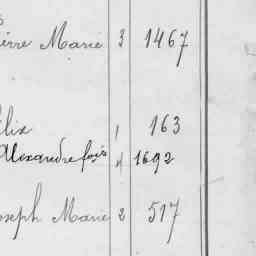 ierre Marie 3 1467
élix 1 163
Alexandre 4 1692
oseph Marie 2 517